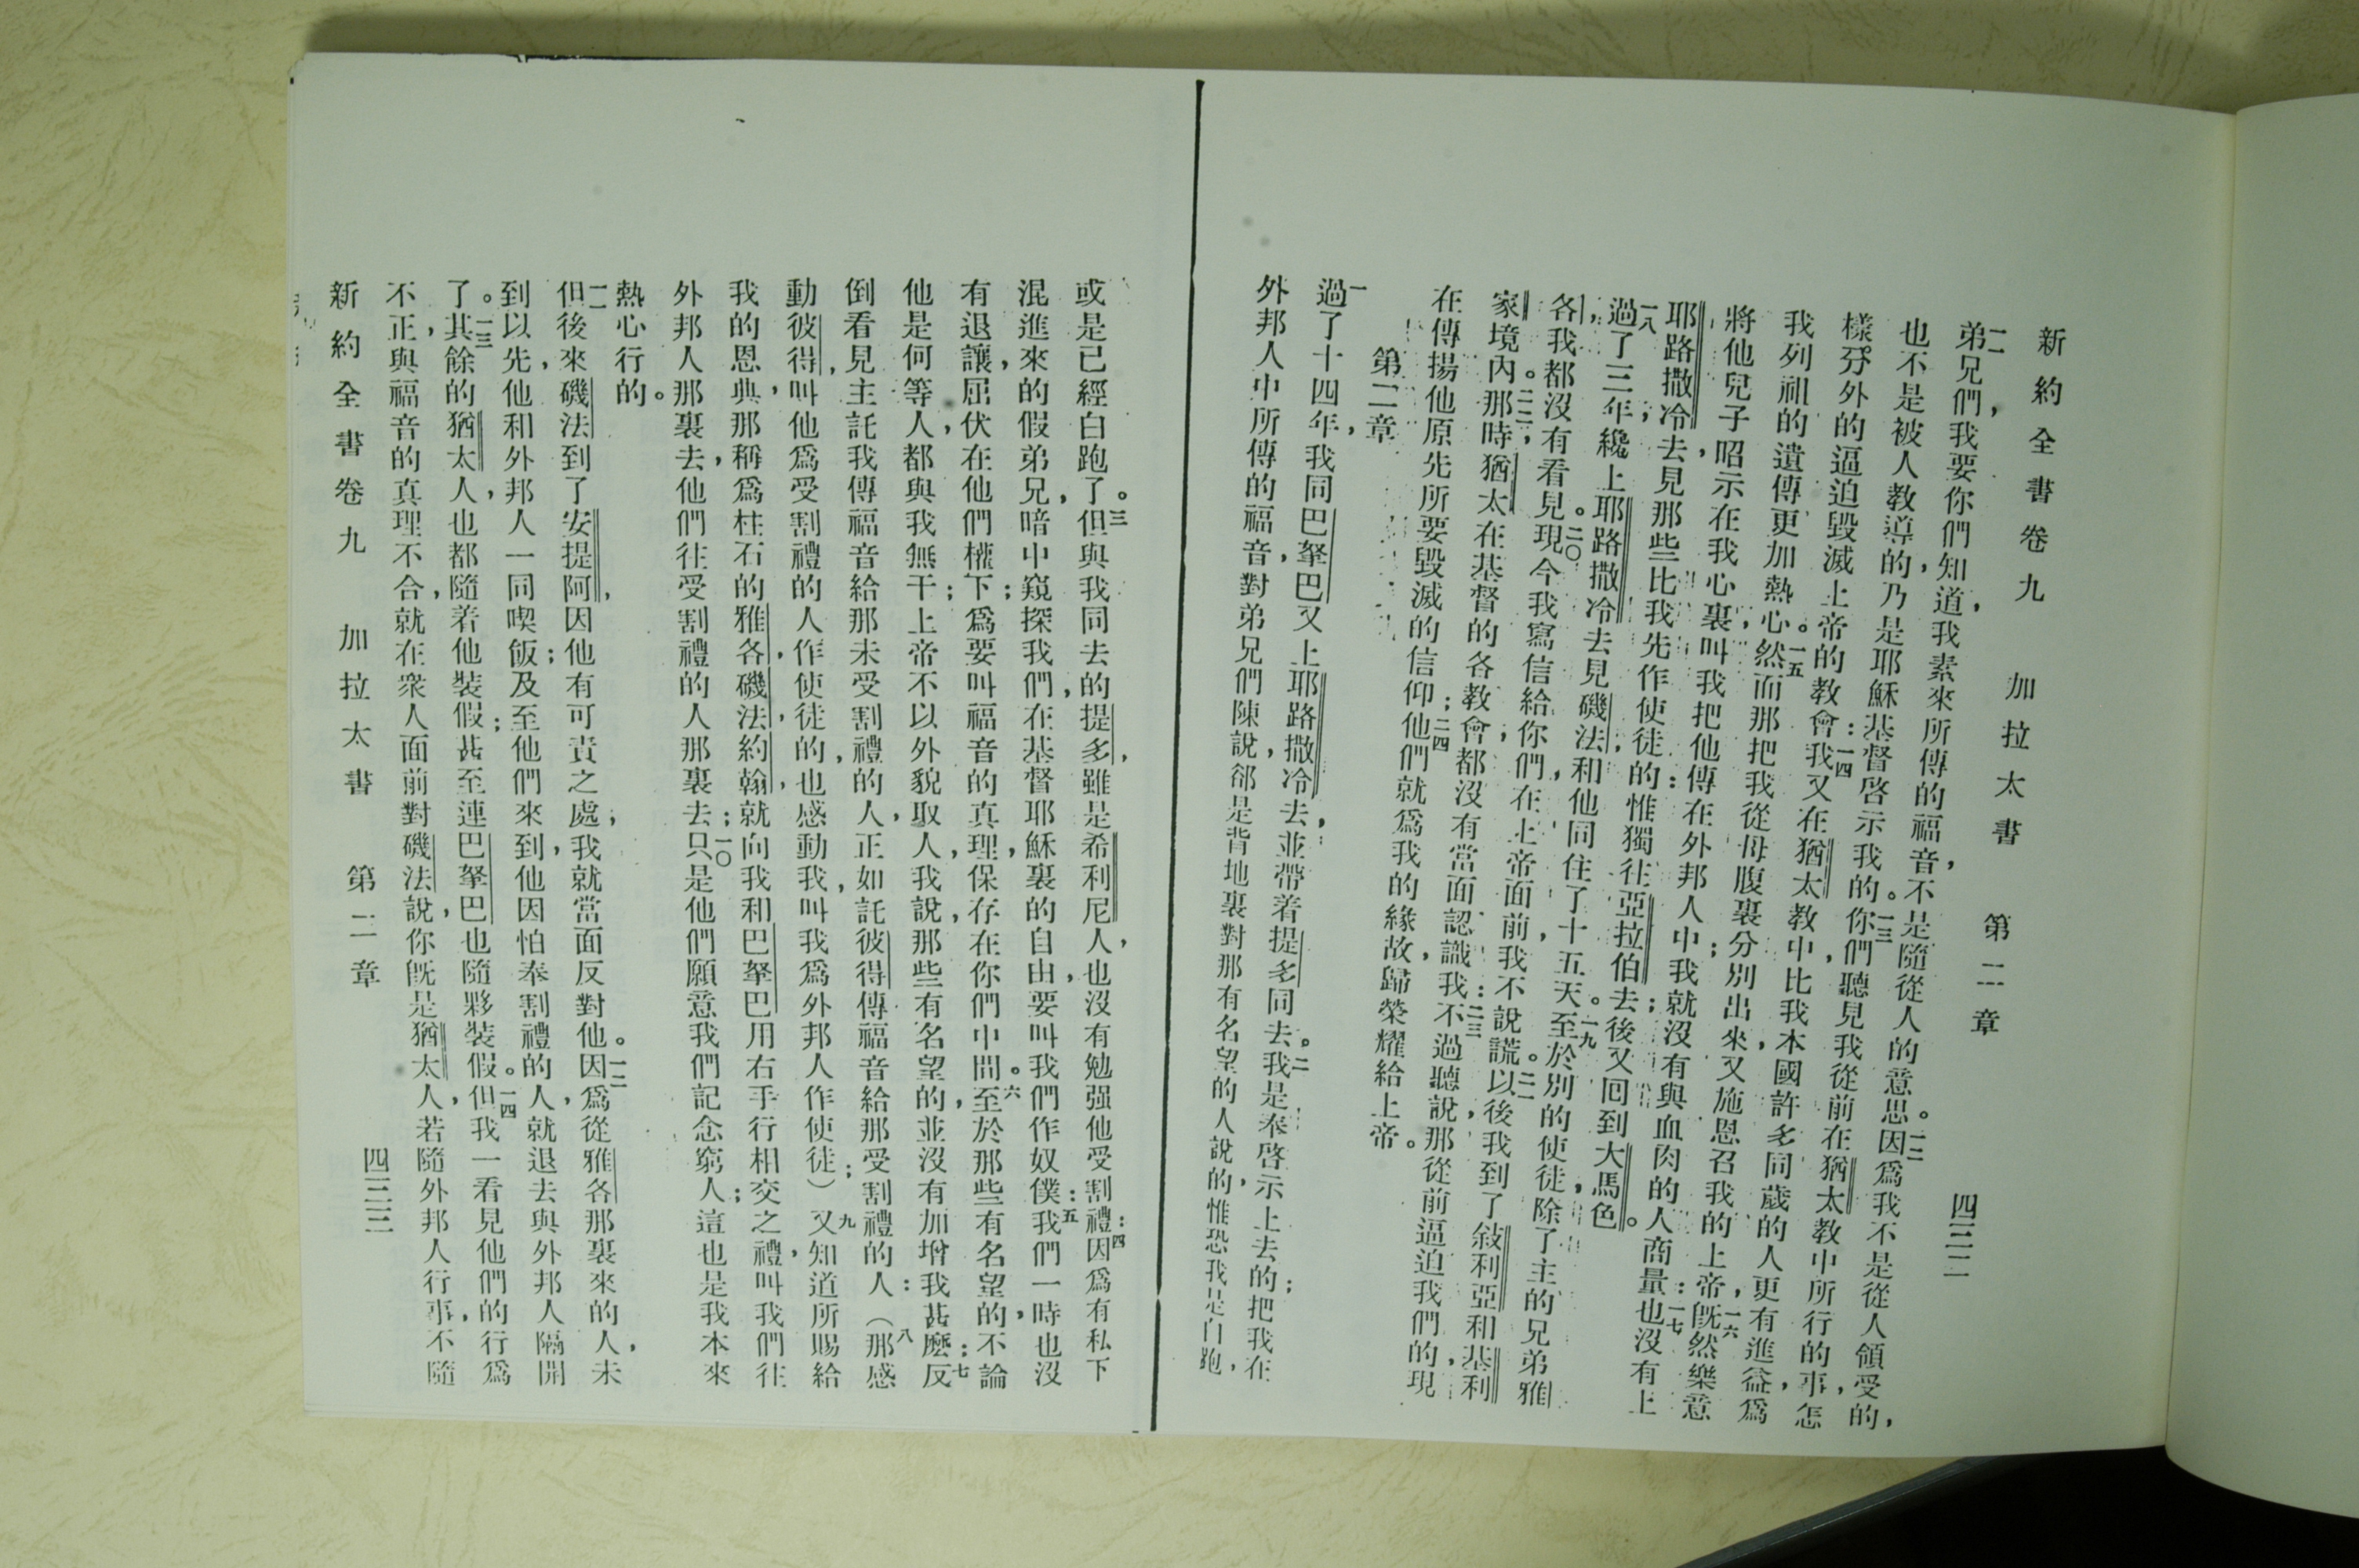 新約全書卷九 加拉太書 第二章 四三二
一一弟兄們，我要你們知道，我素來所傳的福音，不是隨從人的意思。一二因爲我不是從人領受的，
也不是被人教導的，乃是耶穌基督啓示我的。一三你們聽見我從前在猶太教中所行的事，怎
樣分外的逼迫毀滅上帝的教會：一四我又在猶太教中，比我本國許多同歲的人更有進益，爲
我列祖的遺傳更加熱心。一五然而那把我從母腹裏分別出來，又施恩召我的上帝，一六既然樂意
將他兒子昭示在我心裏，叫我把他傳在外邦人中；我就沒有與血肉的人商量：一七也沒有上
耶路撒冷去，見那些比我先作使徒的：惟獨往亞拉伯去；後又囘到大馬色。
一八過了三年，纔上耶路撒冷去見磯法，和他同住了十五天。一九至於別的使徒，除了主的兄弟雅
各，我都沒有看見。二〇現今我寫信給你們，在上帝面前，我不說謊。二一以後我到了敍利亞和基利
家境內。二二那時，猶太在基督的各教會，都沒有當面認識我：二三不過聽說，那從前逼迫我們的，現
在傳揚他原先所要毀滅的信仰；二四他們就爲我的緣故，歸榮耀給上帝。
第二章
一過了十四年，我同巴拏巴又上耶路撒冷去，並帶着提多同去。二我是奉啓示上去的；把我在
外邦人中所傳的福音，對弟兄們陳說，卻是背地裏對那有名望的人說的，惟恐我是白跑，
或是已經白跑了。三但與我同去的提多，雖是希利尼人，也沒有勉强他受割禮：四因爲有私下
混進來的假弟兄，暗中窺探我們，在基督耶穌裏的自由，要叫我們作奴僕：五我們一時也沒
有退讓，屈伏在他們權下；爲要叫福音的真理，保存在你們中間。六至於那些有名望的，不論
他是何等人，都與我無干；上帝不以外貌取人，我說，那些有名望的，並沒有加增我甚麼；七反
倒看見主託我傳福音給那未受割禮的人，正如託彼得傳福音給那受割禮的人：八（那感
動彼得，叫他爲受割禮的人作使徒的，也感動我，叫我爲外邦人作使徒；）九又知道所賜給
我的恩典，那稱爲柱石的雅各，磯法，約翰，就向我和巴拏巴用右手行相交之禮，叫我們往
外邦人那裏去，他們往受割禮的人那裏去；一〇只是他們願意我們記念窮人；這也是我本來
熱心行的。
一一但後來磯法到了安提阿，因他有可責之處；我就當面反對他。一二因爲從雅各那裏來的人，未
到以先，他和外邦人一同喫飯；及至他們來到，他因怕奉割禮的人，就退去與外邦人隔開
了。一三其餘的猶太人，也都隨着他裝假；甚至連巴拏巴也隨夥裝假。一四但我一看見他們的行爲
不正，與福音的真理不合，就在衆人面前對磯法說，你旣是猶太人，若隨外邦人行事，不隨
新約全書卷九 加拉太書 第二章 四三三